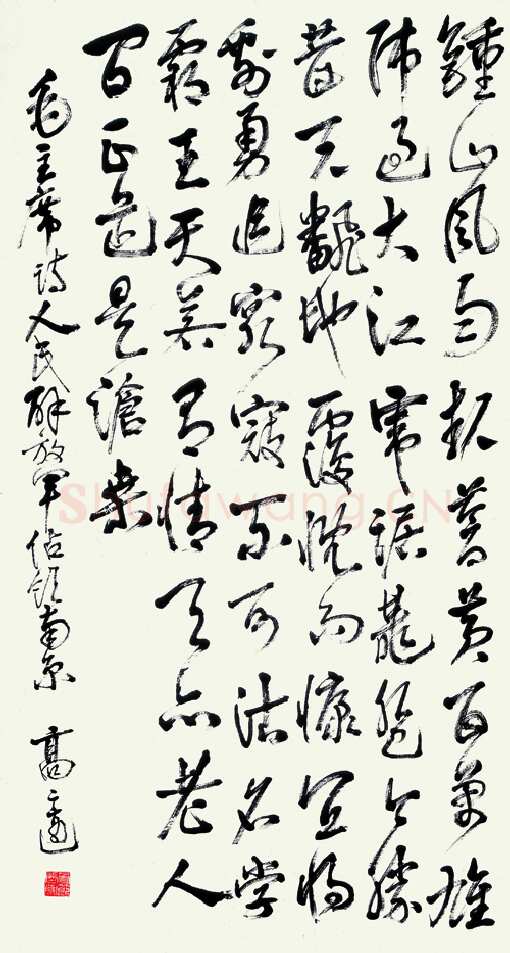 鍾山風雨起蒼黃百萬雄
師過大江虎踞龍盤今勝
昔天飜地覆慨而慷宜將
剩勇追窮寇不可沽名学
霸王天若有情天亦老人
間正道是滄桑
毛主席詩人民解放軍佔領南京 高
Shufawang.CN